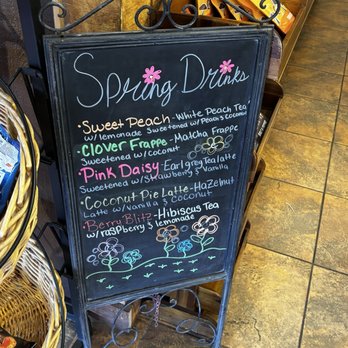 Spring Drinks
• Sweet Peach - White Peach Tea
w/ lemonade Sweetened w/ Peach & Coconut
• Clover Frappe - Matcha Frappe
Sweetened w/ Coconut
• Pink Daisy - Earl grey Tea latte
Sweetened w/ Strawberry & Vanilla
• Coconut Pie Latte - Hazelnut
Latte w/ Vanilla & Coconut
• Berry Blitz - Hibiscus Tea
w/ raspberry & lemonade